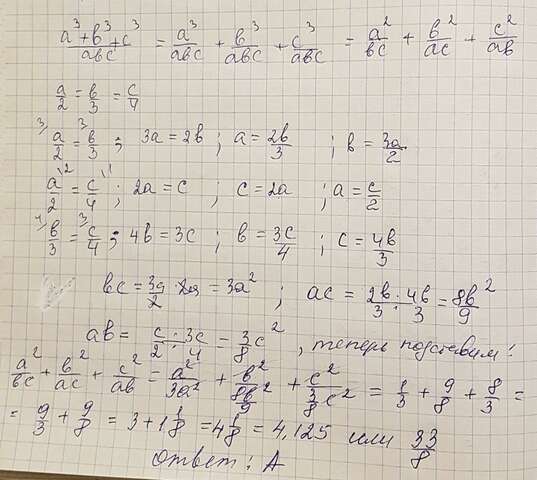 a³+b³+c³/abc = a³/abc + b³/abc + c³/abc = a²/bc + b²/ac + c²/ab
a/2 = b/3 = c/4
³⁾a/2 = ³⁾b/3 ; 3a = 2b ; a = 2b/3 ; b = 3a/2
a\²/2 = c\¹/4 ; 2a = c ; c = 2a ; a = c/2
⁴⁾b/3 = ³⁾c/4 ; 4b = 3c ; b = 3c/4 ; c = 4b/3
bc = 3a/2 · 2a = 3a² ; ac = 2b/3 · 4b/3 = 8b²/9
ab = c/2 · 3c/4 = 3/8 c² , теперь подставим:
a²/bc + b²/ac + c²/ab = a²/3a² + b²/8b²/9 + c²/3/8 c² = 1/3 + 9/8 + 8/3 =
= 9/3 + 9/8 = 3 + 1 1/8 = 4 1/8 = 4,125 или 33/8
Ответ: А